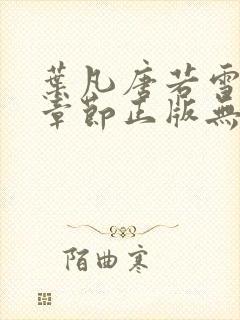 葉凡唐若雪
章節正版無
陌曲寒